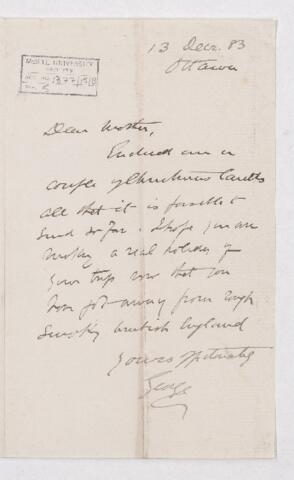 McGILL UNIVERSITY
ACC. NO.
13 Decr. 83
Ottawa
Dear Mother,
Enclosed are a
couple of Christmas Cards
all that it is possible to
send so far. I hope you are
making a real holiday of
your trip now that you
have got away from
Smoky British England
Yours affectnately
George